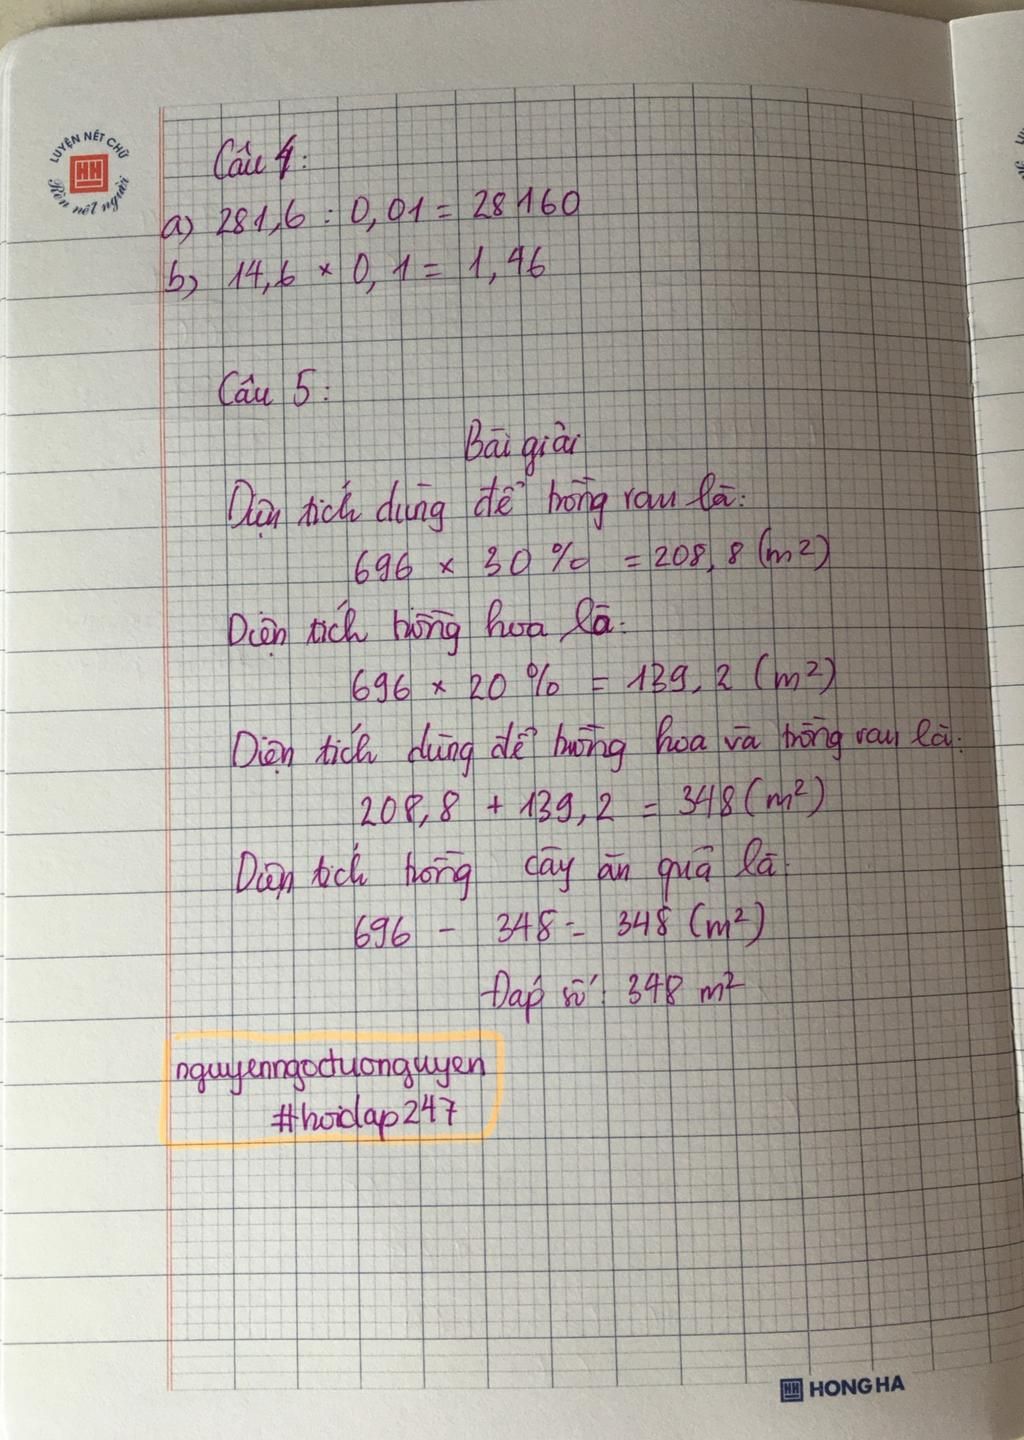 LUYỆN NÉT CHỮ
HH
Rèn nết người
Câu 4:
a) 281,6 : 0,01 = 28160
b) 14,6 × 0,1 = 1,46
Câu 5:
Bài giải
Diện tích dùng để trồng rau là:
696 × 30 % = 208,8 (m²)
Diện tích trồng hoa là:
696 × 20 % = 139,2 (m²)
Diện tích dùng để trồng hoa và trồng rau là:
208,8 + 139,2 = 348 (m²)
Diện tích trồng cây ăn quả là:
696 - 348 = 348 (m²)
Đáp số: 348 m²
nguyenngoctuonguyen
#hoidap247
HH HONG HA